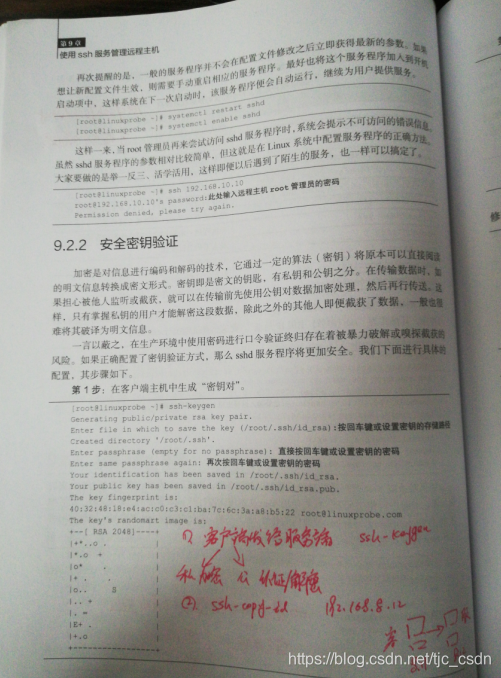 第9章
使用 ssh 服务管理远程主机
再次提醒的是，一般的服务程序并不会在配置文件修改之后立即获得最新的参数。如果
想让新配置文件生效，则需要手动重启相应的服务程序。最好也将这个服务程序加入到开机
启动项中，这样系统在下一次启动时，该服务程序便会自动运行，继续为用户提供服务。
[root@linuxprobe ~]# systemctl restart sshd
[root@linuxprobe ~]# systemctl enable sshd
这样一来，当 root 管理员再来尝试访问 sshd 服务程序时，系统会提示不可访问的错误信息。
虽然 sshd 服务程序的参数相对比较简单，但这就是在 Linux 系统中配置服务程序的正确方法。
大家要做的是举一反三、活学活用，这样即便以后遇到了陌生的服务，也一样可以搞定了。
[root@linuxprobe ~]# ssh 192.168.10.10
root@192.168.10.10's password:此处输入远程主机 root 管理员的密码
Permission denied, please try again.
9.2.2 安全密钥验证
加密是对信息进行编码和解码的技术，它通过一定的算法（密钥）将原本可以直接阅读
的明文信息转换成密文形式。密钥即是密文的钥匙，有私钥和公钥之分。在传输数据时，如
果担心被他人监听或截获，就可以在传输前先使用公钥对数据加密处理，然后再行传送。这
样，只有掌握私钥的用户才能解密这段数据，除此之外的其他人即便截获了数据，一般也很
难将其破译为明文信息。
一言以蔽之，在生产环境中使用密码进行口令验证终归存在着被暴力破解或嗅探截获的
风险。如果正确配置了密钥验证方式，那么 sshd 服务程序将更加安全。我们下面进行具体的
配置，其步骤如下。
第 1 步：在客户端主机中生成“密钥对”。
[root@linuxprobe ~]# ssh-keygen
Generating public/private rsa key pair.
Enter file in which to save the key (/root/.ssh/id_rsa):按回车键或设置密钥的存储路径
Created directory '/root/.ssh'.
Enter passphrase (empty for no passphrase): 直接按回车键或设置密钥的密码
Enter same passphrase again: 再次按回车键或设置密钥的密码
Your identification has been saved in /root/.ssh/id_rsa.
Your public key has been saved in /root/.ssh/id_rsa.pub.
The key fingerprint is:
40:32:48:18:e4:ac:c0:c3:c1:ba:7c:6c:3a:a8:b5:22 root@linuxprobe.com
The key's randomart image is:
+--[ RSA 2048]----+
|+*..o .
|*.o +
|o* .
|+ . .
|o.. S
|.. +
|. =
|E+ .
|+.o
+-----------------+
客户端 服务端 ssh-keygen
ssh-copy-id 192.168.8.12
https://blog.csdn.net/tjc_csdn